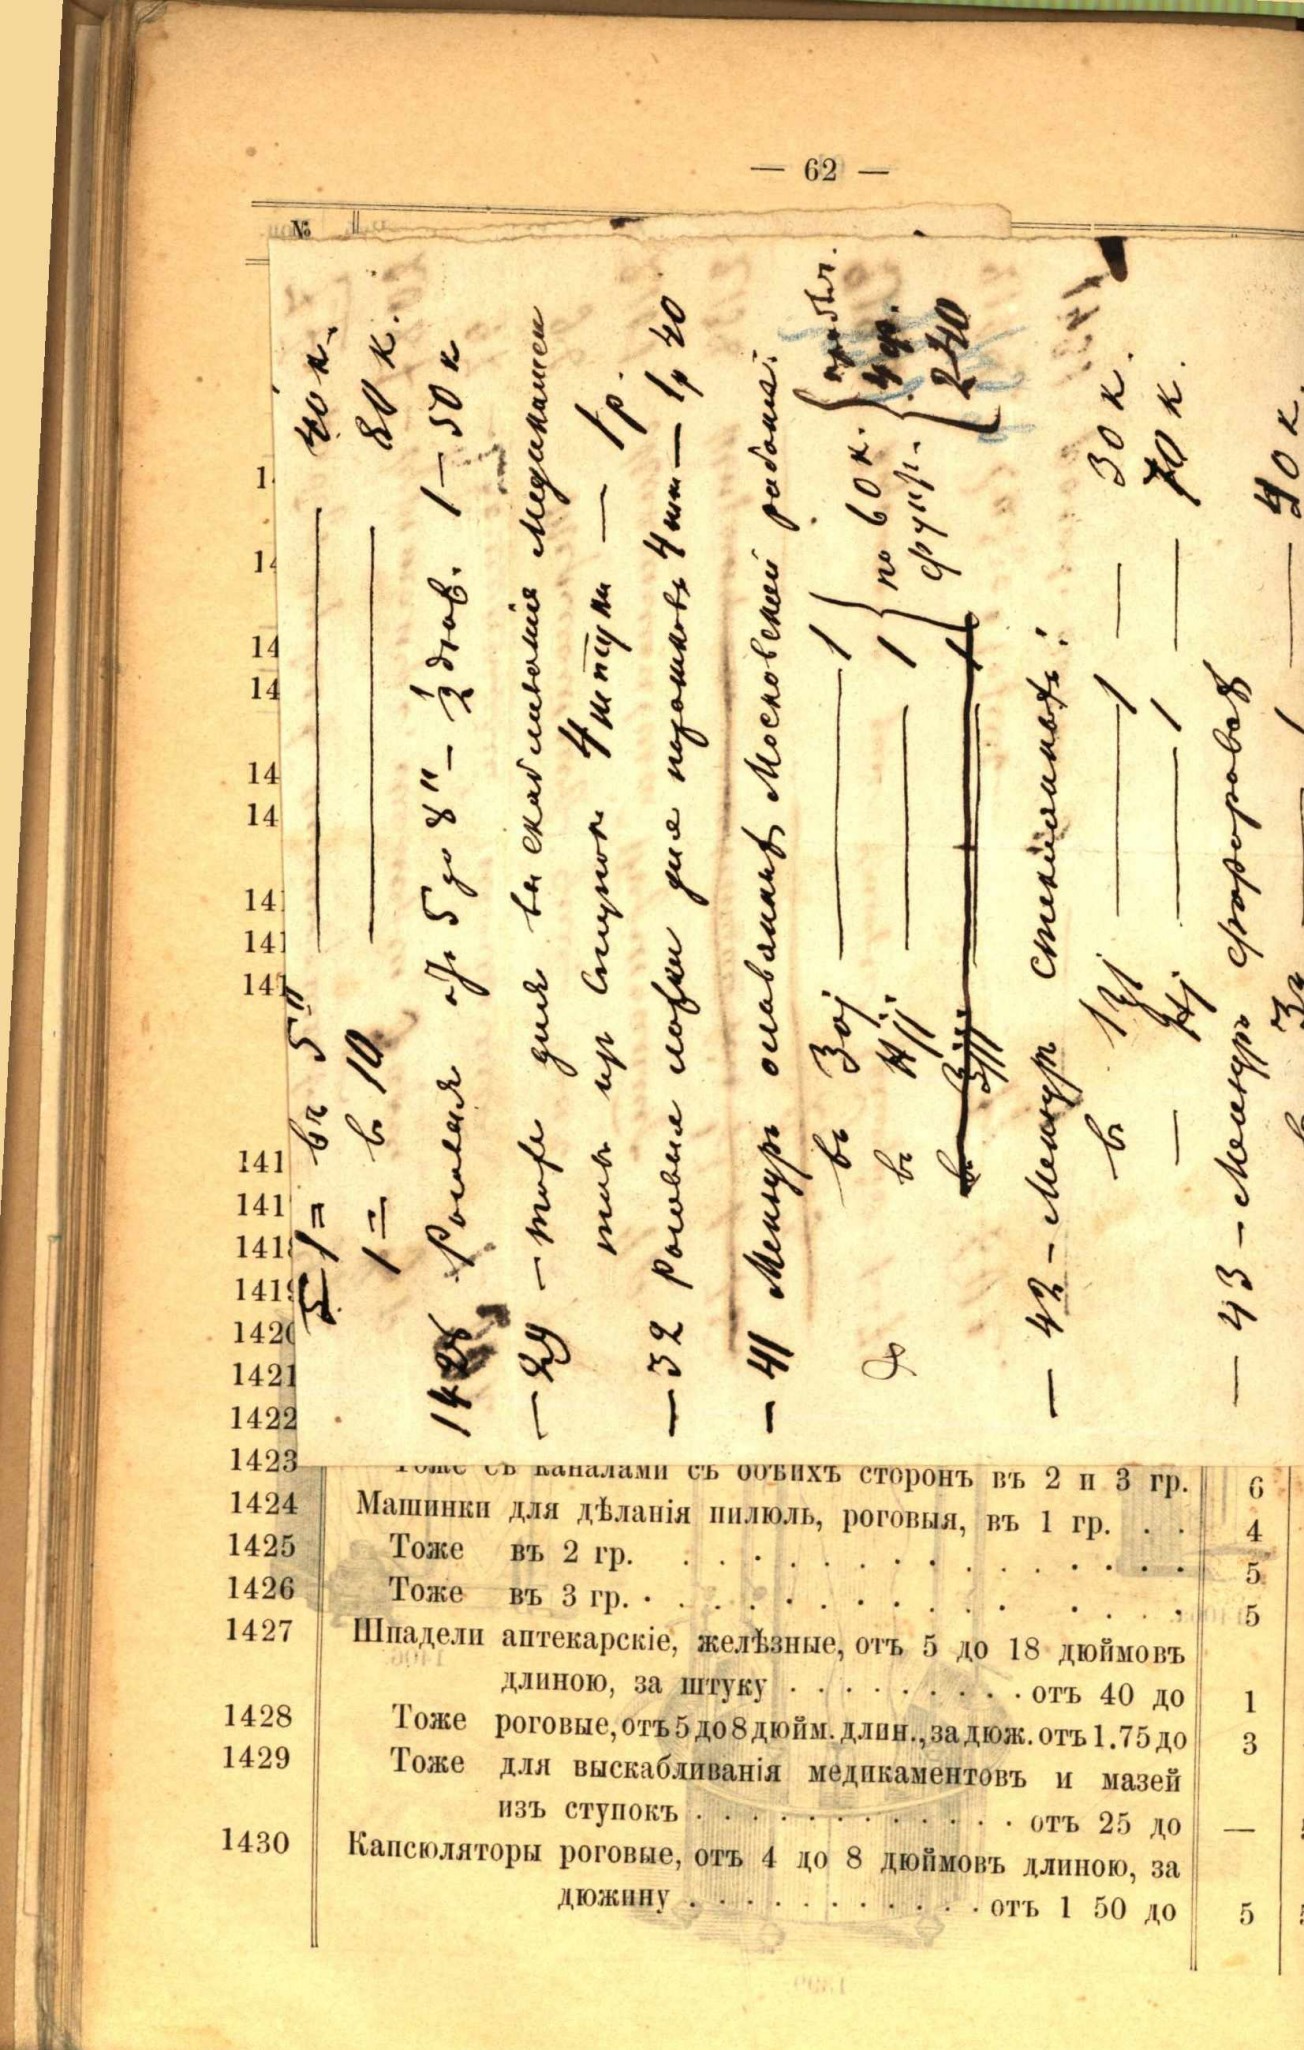 — 62 —
№
1 = въ 5" — 40 к.
1 = в 10 — 80 к.
1428 Роговыя отъ 5 до 8" — ½ дюж. 1 — 50 к
— 29 — тоже для выскабливанія Медикамен
товъ изъ ступокъ 4 штуки — 1 р.
— 32 Роговые ложки для порошковъ 4 шт — 1р 40
— 41 Мензуръ оловянныхъ Московской работы:
въ ℥vj — 1
въ ℔ — 1 по 60 к.
фунт.
240
— 42 — Мензуръ стеклянныхъ:
в — 1 — 30 к.
— 1 — 70 к.
— 43 — Мензуръ фарфоровыхъ
— 40 к.
141
141
1418
1419
1420
1421
1422
1423 Тоже съ каналами съ обѣихъ сторонъ въ 2 и 3 гр. 6
1424 Машинки для дѣланія пилюль, роговыя, въ 1 гр. . . 4
1425 Тоже въ 2 гр. . . . . . . . . . . . . . . 5
1426 Тоже въ 3 гр. . . . . . . . . . . . . . . 5
1427 Шпадели аптекарскіе, желѣзные, отъ 5 до 18 дюймовъ
длиною, за штуку . . . . . . . . . отъ 40 до 1
1428 Тоже роговые, отъ 5 до 8 дюйм. длин., за дюж. отъ 1.75 до 3
1429 Тоже для выскабливанія медикаментовъ и мазей
изъ ступокъ . . . . . . . . . . . . отъ 25 до —
1430 Капсюляторы роговые, отъ 4 до 8 дюймовъ длиною, за
дюжину . . . . . . . . . . . отъ 1 50 до 5